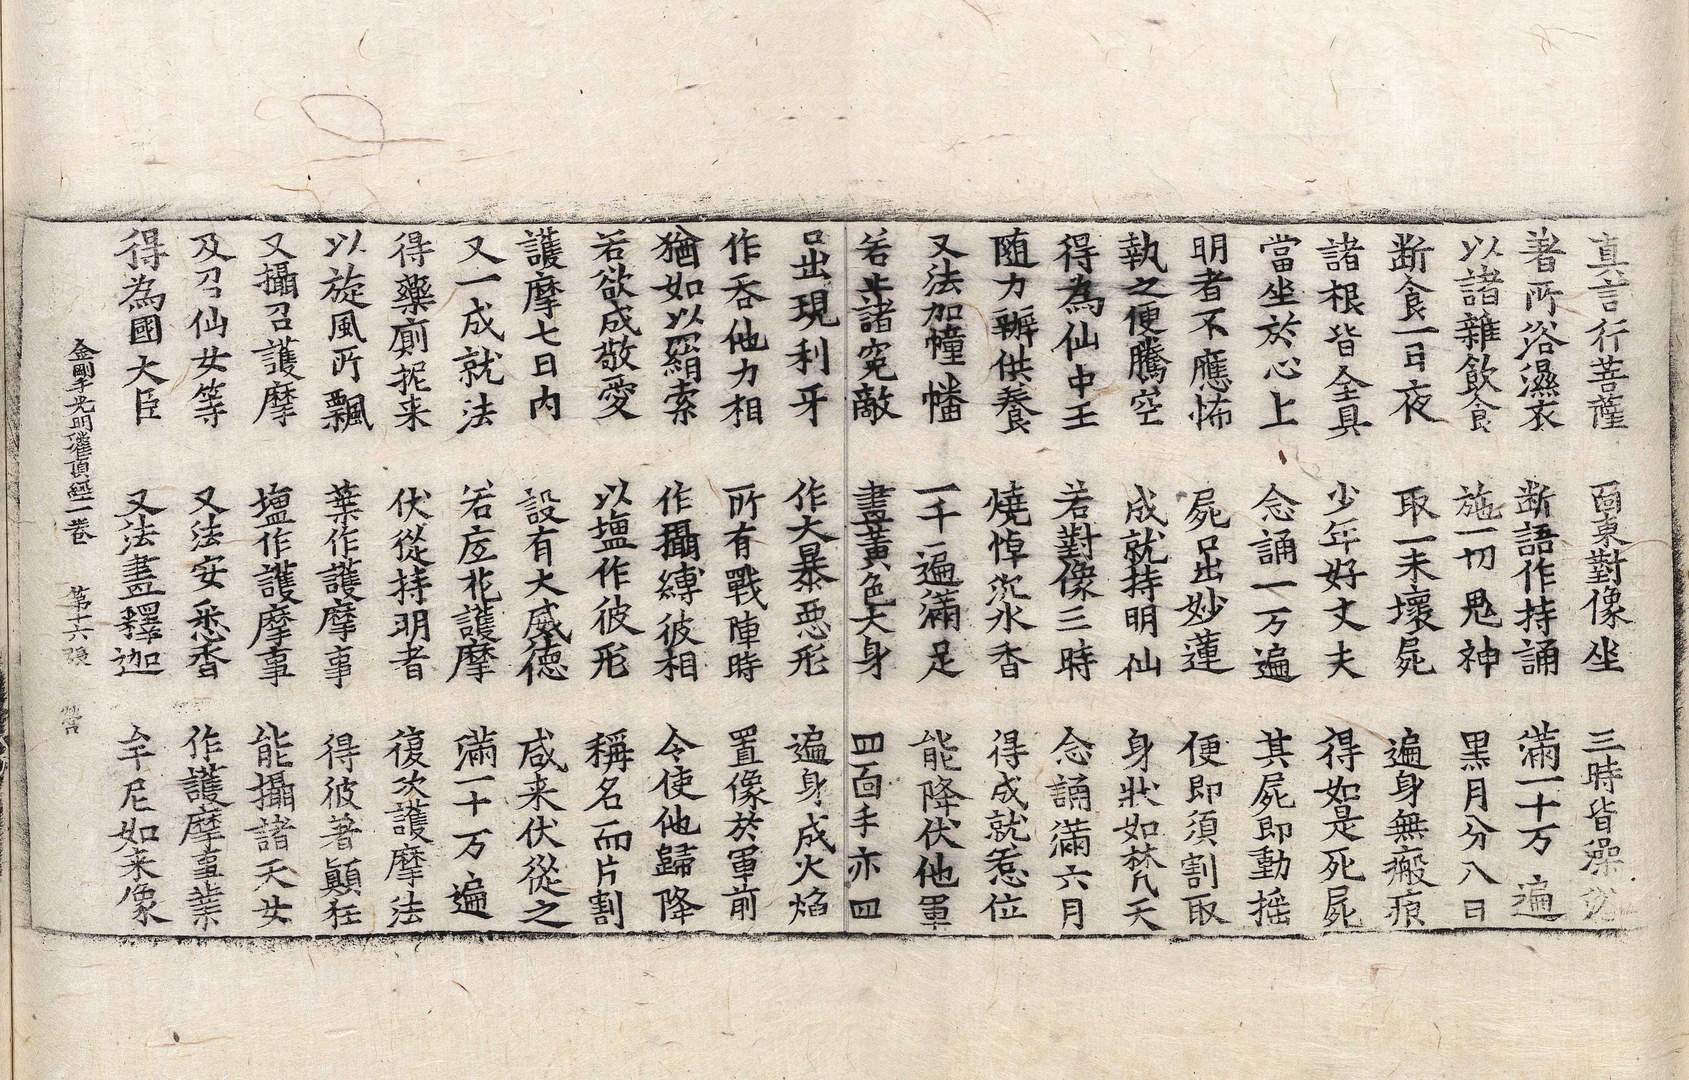 真言行菩薩 面東對像坐 三時皆澡浴
著所浴濕衣 断語作持誦 滿一十万遍
以諸雜飲食 施一切鬼神 黑月分八日
断食一日夜 取一未壞屍 遍身無瘢痕
諸根皆全具 少年好丈夫 得如是死屍
當坐於心上 念誦一万遍 其屍即動揺
明者不應怖 屍口出妙蓮 便即須割取
執之便騰空 成就持明仙 身狀如梵天
得為仙中王 若對像三時 念誦滿六月
随力辦供養 燒焯沉水香 得成就惹位
又法加幢幡 一千遍滿足 能降伏他軍
若止諸寃敵 畫黃色大身 四面手亦四
口出現利牙 作大暴惡形 遍身成火焰
作吞他力相 所有戰陣時 置像於軍前
猶如以羂索 作攝縛彼相 令使他歸降
若欲成敬愛 以塩作彼形 稱名而片割
護摩七日內 設有大威德 咸来伏從之
又一成就法 若應花護摩 滿一十万遍
得藥廁抳来 伏從持明者 復次護摩法
以旋風所飄 葉作護摩事 得彼著顛狂
又攝召護摩 塩作護摩事 能攝諸天女
及召仙女等 又法安悉香 作護摩事業
得為國大臣 又法畫釋迦 牟尼如来像
金剛手光明灌頂經一卷 第十六張